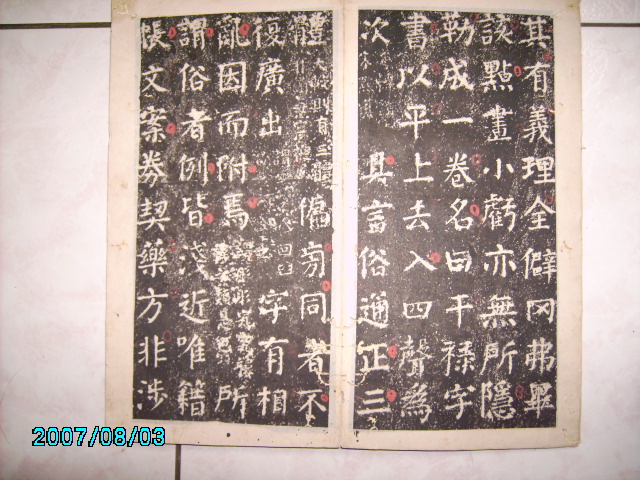 其有義理全僻罔弗畢
該點畫小虧亦無所隱
勒成一卷名曰干祿字
書以平上去入四聲爲
次
具言俗通正三
體
偏旁同者不
復廣出
字有相
亂因而附焉
所
謂俗者例皆淺近唯籍
帳文案券契藥方非涉
2007/08/03